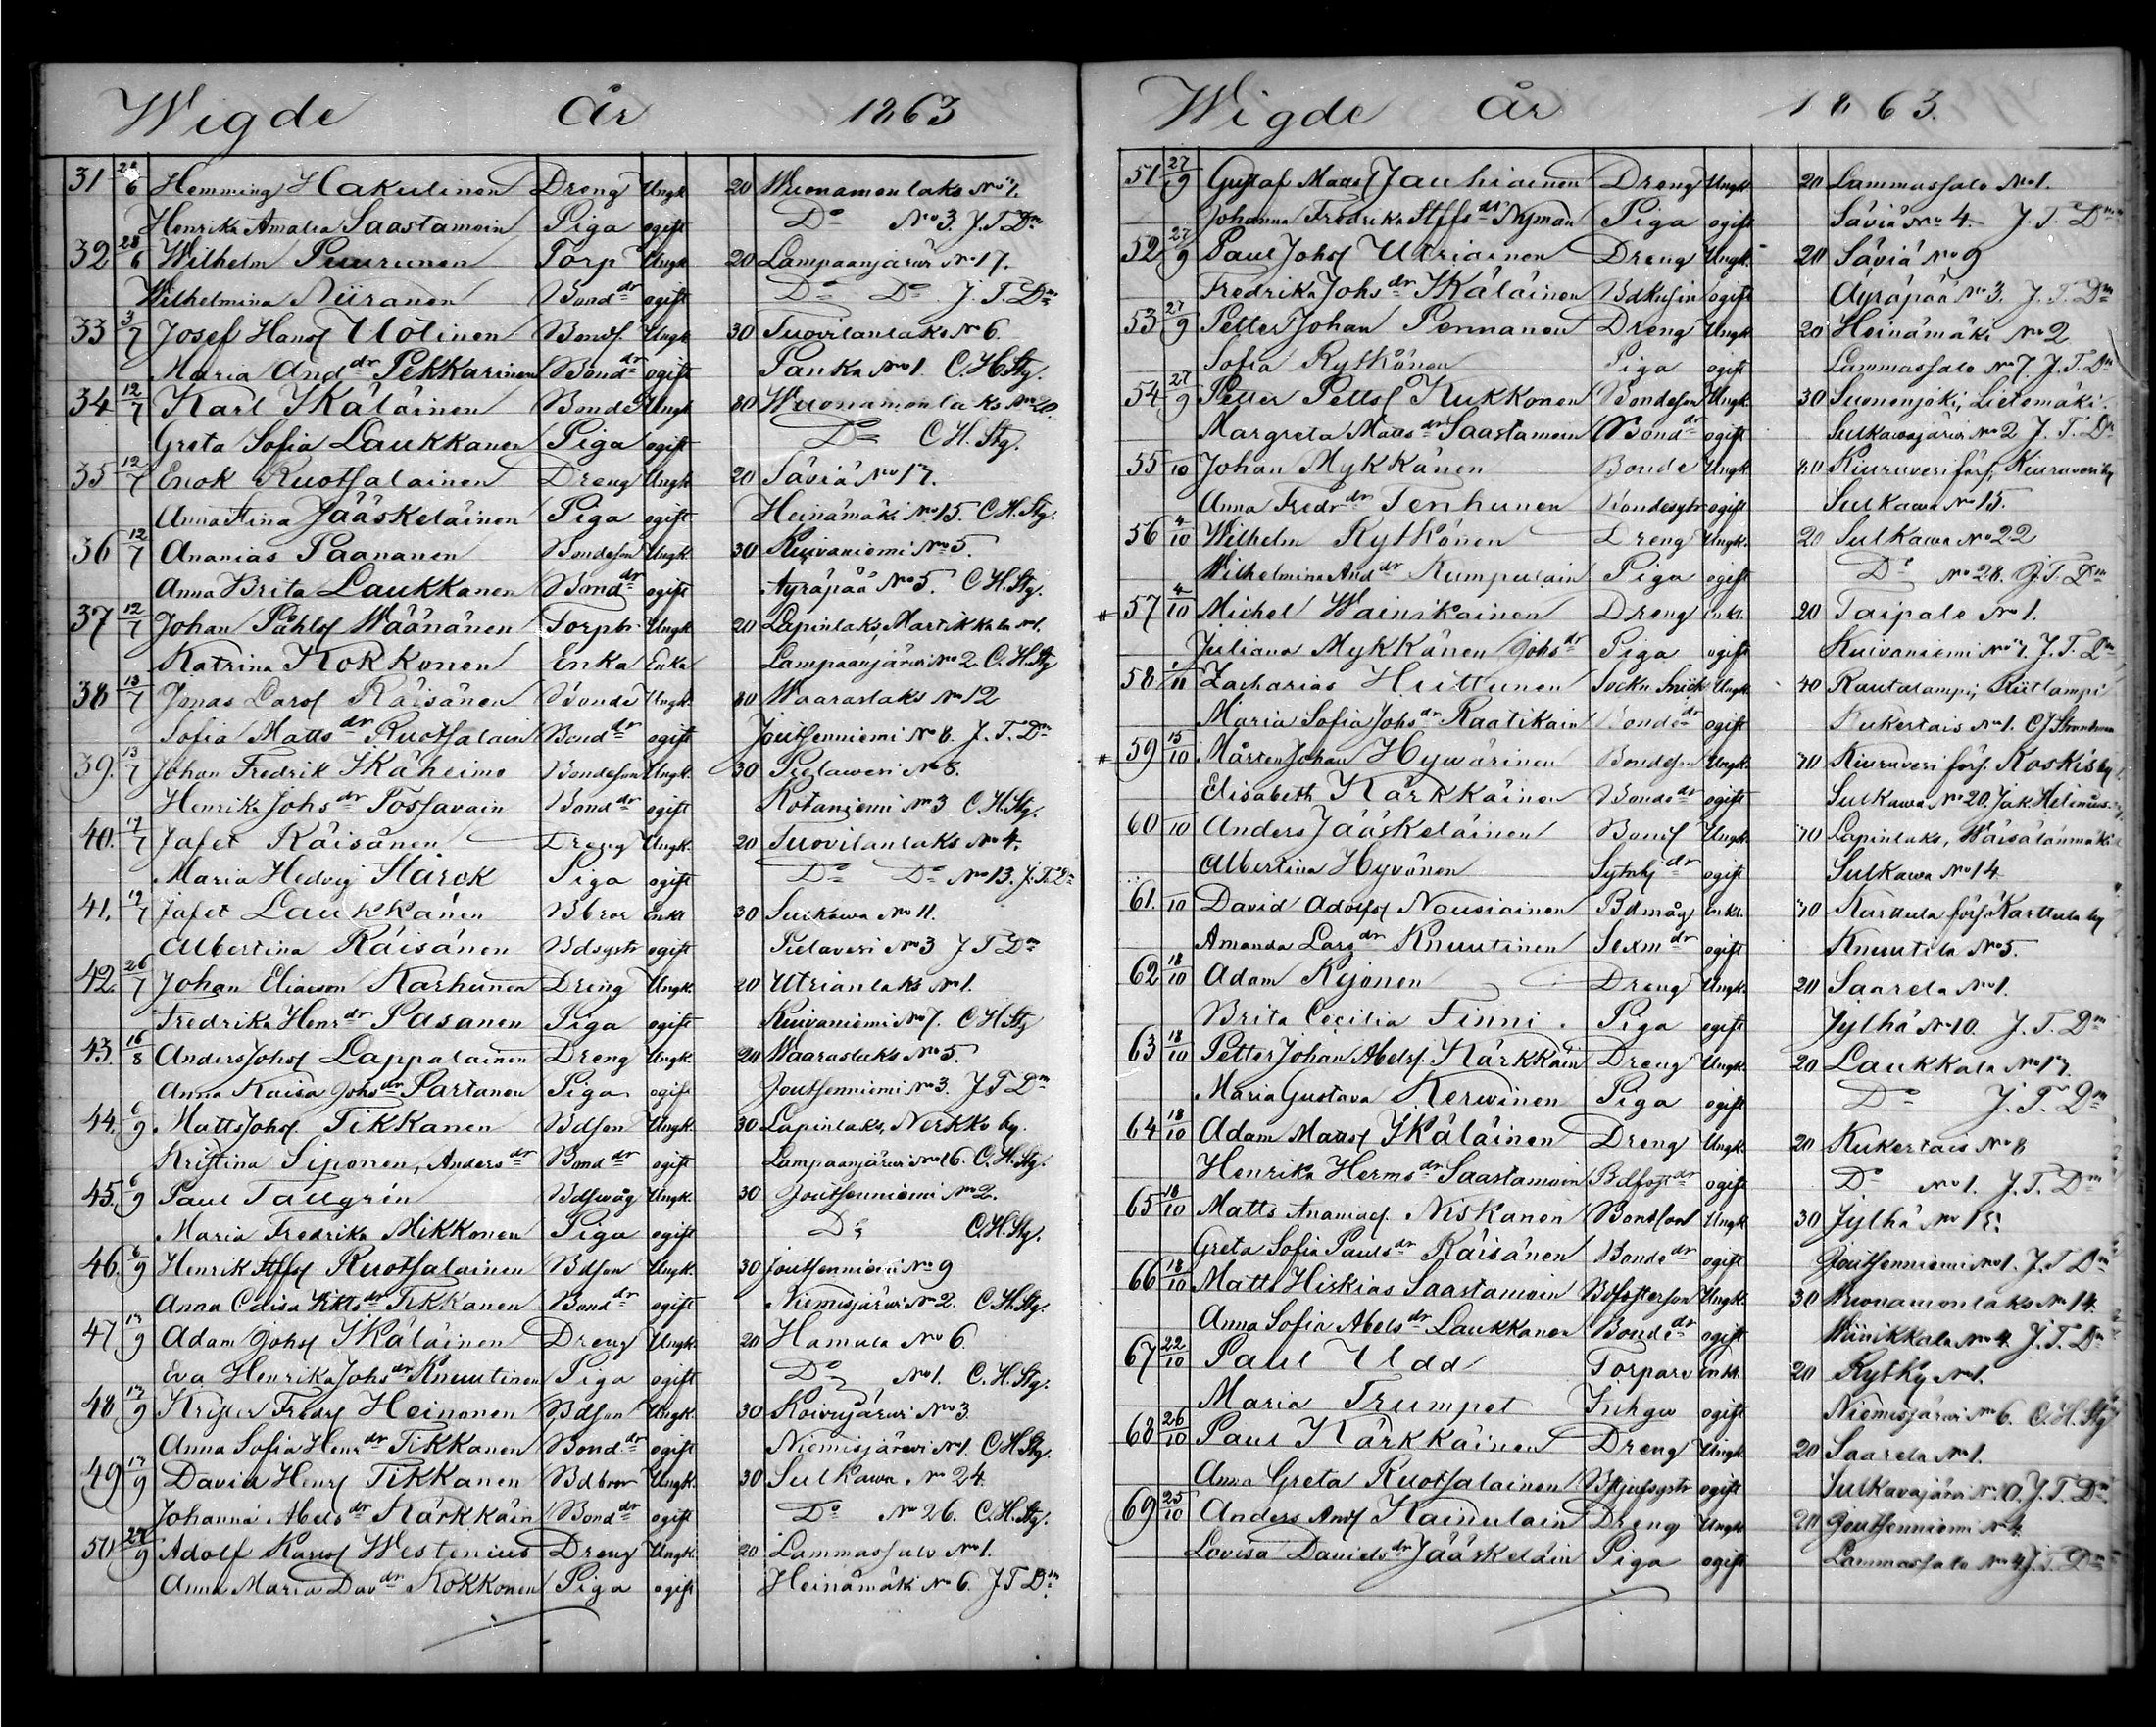 Wigde År 1863
31 28/6 Hemming Hakulinen Dreng Ungk. 20 Wuonamonlaks No 7.
Henrika Amalia Saastamoin Piga ogift Do No 3. J.T.Dm
32 28/6 Wilhelm Puurunen Torp Ungk. 20 Lampaanjärvi No 17.
Wilhelmina Niiranen Bonddr ogift Do Do J.T.Dm
33 3/7 Josef Hansf Uotinen Bondf Ungk. 30 Tuovilanlaks No 6.
Maria Anddr Pekkarinen Bonddr ogift Panka No 1. C.H.Stg.
34 12/7 Karl Ikäläinen Bondef Ungk. 30 Wuonamonlaks No 20.
Greta Sofia Laukkanen Piga ogift Do C.H.Stg.
35 12/7 Enok Ruotsalainen Dreng Ungk. 20 Säviä No 17.
Anna Stina Jääskeläinen Piga ogift Heinämäki No 15. C.H.Stg.
36 12/7 Ananias Paananen Bondeson Ungk. 30 Kuivaniemi No 5.
Anna Brita Laukkanen Bonddr ogift Äyräpää No 5. C.H.Stg.
37 12/7 Johan Påhlsf Wäänänen Torpts. Ungk. 20 Lapinlaks, Martikkala No 1.
Katrina Kokkonen Enka Enka Lampaanjärvi No 2. C.H.Stg
38 13/7 Jonas Larsf Räisänen Bonde Ungk. 30 Waaraslaks No 12
Sofia Mattsdr Ruotsalain Bonddr ogift Joutsenniemi No 8. J.T.Dm
39. 13/7 Johan Fredrik Ikäheimo Bondeson Ungk. 30 Pielaweri No 8.
Henrika Johsdr Tossavain Bonddr ogift Kotaniemi No 3 C.H.Stg.
40. 17/7 Jafet Räisänen Dreng Ungk. 20 Tuovilanlaks No 4.
Maria Hedvig Starck Piga ogift Do Do No 13. J.T.Dm
41. 19/7 Jafet Laukkanen Bbror Enkl 30 Sulkawa No 11.
Albertina Räisänen Bdsystr ogift Pielaveri No 3 J T Dm
42. 26/7 Johan Eliasson Karhunen Dreng Ungk. 20 Utrianlaks No 1.
Fredrika Henrdr Pasanen Piga ogift Kuivaniemi No 7. C H Stg
43. 16/8 Anders Johsf Lappalainen Dreng Ungk. 20 Waaraslaks No 5.
Anna Kaisa Johsdr Partanen Piga ogift Joutsenniemi No 3. J T Dm
44. 6/9 Matts Johsf. Tikkanen Bdson Ungk. 30 Lapinlaks, Nerkko by.
Kristina Siponen, Andersdr Bonddr ogift Lampaanjärvi No 16. C.H.Stg.
45. 6/9 Paul Tallgrén Bdswåg Ungk. 30 Joutsenniemi No 2.
Maria Fredrika Mikkonen Piga ogift Do C.H.Stg.
46. 6/9 Henrik Stffsf Ruotsalainen Bdson Ungk. 30 Joutsenniemi No 9
Anna Caisa dr Tikkanen Bonddr ogift Niemisjärvi No 2. C.H.Stg.
47 13/9 Adam Johsf Ikäläinen Dreng Ungk. 20 Hamula No 6.
Eva Henrika Johsdr Knuutinen Piga ogift Do No 1. C.H.Stg.
48 13/9 Krister Fredrsf Heinonen Bdson Ungk. 30 Koivujärvi No 3.
Anna Sofia Henrdr Tikkanen Bonddr ogift Niemisjärvi No 1. C H Stg.
49 13/9 David Henrsf Tikkanen Bdbror Ungk. 30 Sulkawa No 24.
Johanna Abelsdr Kärkkäin Bonddr ogift Do No 26. C.H.Stg.
50 27/9 Adolf Karlsf Westenius Dreng Ungk. 20 Lammassalo No 1.
Anna Maria Davdr Kokkonen Piga ogift Heinämäki No 6. J T Dm
Wigde År 1863.
51 27/9 Gustaf Mattsf Jauhiainen Dreng Ungk. 20 Lammassalo No 1.
Johanna Fredrika Stffsdr Nyman Piga ogift Säviä No 4. J.T.Dm
52 27/9 Paul Johsf Utriainen Dreng Ungk. 20 Säviä No 9
Fredrika Johsdr Ikäläinen Bdkusin ogift Äyräpää No 3. J.T.Dm
53 27/9 Petter Johan Pennanen Dreng Ungk 20 Heinämäki No 2
Sofia Rytkönen Piga ogift Lammassalo No 7. J.T.Dm
54 27/9 Petter Pettsf Kukkonen Bondeson Ungk. 30 Suonenjoki, Lietemäki.
Margreta Mattsdr Saastamoin Bonddr ogift Sulkavajärvi No 2 J.T.Dm
55 /10 Johan Mykkänen Bonde Ungk. 80 Kiuruvesi förs, Kiuruvesi by
Anna Fredrdr Tenhunen Bondesystr ogift Sulkawa No 15.
56 4/10 Wilhelm Rytkönen Dreng Ungk. 20 Sulkawa No 22
Wilhelmina Anddr Kumpulain Piga ogift Do No 28. J.T.Dm
# 57 4/10 Michel Wainikainen Dreng Enkl. 20 Taipale No 1.
Juliana Mykkänen Johsdr Piga ogift Kuivaniemi No 7. J.T.Dm
58 1/11 Zacharias Huttunen Sockn Snick Ungk. 40 Rautalampi, Kiitlampi
Maria Sofia Johsdr Raatikain Bondedr ogift Kukertais No 1. C J Strandman
# 59 15/10 Mårten Johan Hyvärinen Bondeson Ungk. 70 Kiuruvesi förs. Koskis by
Elisabeth Kärkkäinen Bondedr ogift Sulkawa No 20. Jak Helinius.
60 /10 Anders Jääskeläinen Bondf Ungk. 70 Lapinlaks, Wäisälänmäki
Albertina Hyvönen dr ogift Sulkawa No 14
61. /10 David Adolfsf Nousiainen Bdmåg Enkl. 70 Karttula förs. Karttula by
Amanda Larsdr Knuutinen Sexmdr ogift Knuutila No 5.
62 18/10 Adam Kejonen Dreng Ungk. 20 Saarela No 1.
Brita Cecilia Finni. Piga ogift Jylhä No 10. J.T.Dm
63 18/10 Petter Johan Abelsf. Kärkkäin Dreng Ungk. 20 Laukkala No 17.
Maria Gustava Kerwinen Piga ogift Do J.T.Dm
64 18/10 Adam Mattsf Ikäläinen Dreng Ungk. 20 Kukertais No 8
Henrika Hermsdr Saastamoin Bdfostdr ogift Do No 1. J.T.Dm
65 18/10 Matts Ananiasf. Niskanen Bondson Ungk 30 Jylhä No 15.
Greta Sofia Paulsdr Räisänen Bondedr ogift Joutsenniemi No 1. J.T Dm
66 18/10 Matts Hiskias Saastamoin Bdfosterson Ungk. 30 Wuonamonlaks No 14.
Anna Sofia Abelsdr Laukkanen Bondedr ogift Wiinikkala No 4. J.T.Dm
67 22/10 Paul Udd Torpare Enkl. 20 Rytky No 1.
Maria Trumpet ogift Niemisjärvi No 6. C.H.Stg
68 26/10 Paul Kärkkäinen Dreng Ungk. 20 Saarela No 1.
Anna Greta Ruotsalainen ogift Sulkavajärvi No 10. J.T.Dm
69 25/10 Anders Andf Kainulain Dreng Ungk. 20 Joutsenniemi No 4.
Lovisa Danielsdr Jääskeläin Piga ogift Lammassalo No 4 J.T.Dm